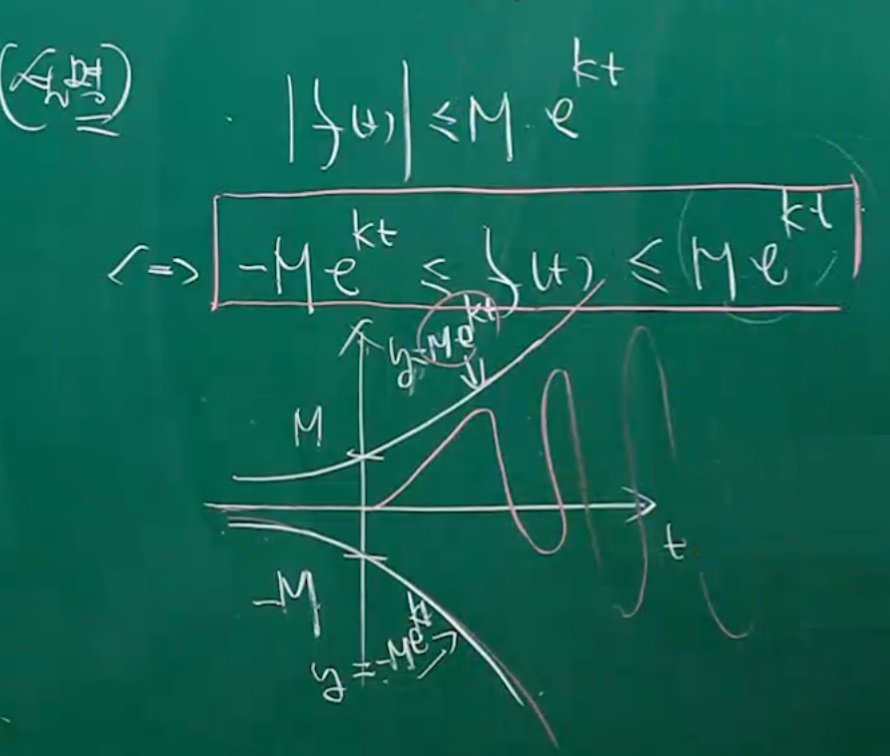 |f(t)| ≤ M e^{kt}
<=> -M e^{kt} ≤ f(t) ≤ M e^{kt}
y=Me^{kt}
M
t
-M
y=-Me^{kt}